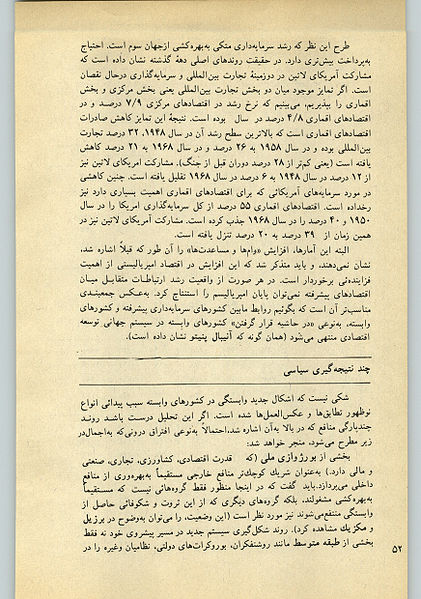 طرح این نظر که رشد سرمایه‌داری متکی به‌بهره‌کشی ازجهان سوم است. احتیاج
به‌پرداخت بیش‌تری دارد. در حقیقت روندهای اصلی دههٔ گذشته نشان داده است که
مشارکت آمریکای لاتین در دوزمینهٔ تجارت بین‌المللی و سرمایه‌گذاری درحال نقصان
است. اگر تمایز موجود میان دو بخش تجارت بین‌المللی یعنی بخش مرکزی و بخش
اقماری را بپذیریم، می‌بینیم که نرخ رشد در اقتصادهای مرکزی ۷/۹ درصد و در
اقتصادهای اقماری ۴/۸ درصد در سال بوده است. نتیجهٔ این تمایز کاهش صادرات
اقتصادهای اقماری است که بالاترین سطح رشد آن در سال ۱۹۴۸، ۳۲ درصد تجارت
بین‌المللی بوده و در سال ۱۹۵۸ به ۲۶ درصد و در سال ۱۹۶۸ به ۲۱ درصد کاهش
یافته است (یعنی کم‌تر از ۲۸ درصد دوران قبل از جنگ). مشارکت امریکای لاتین نیز
از ۱۲ درصد در سال ۱۹۴۸ به ۶ درصد در سال ۱۹۶۸ تقلیل یافته است. چنین کاهشی
در مورد سرمایه‌های آمریکائی که برای اقتصادهای اقماری اهمیت بسیاری دارد نیز
رخداده است. اقتصادهای اقماری ۵۵ درصد از کل سرمایه‌گذاری امریکا را در سال
۱۹۵۰ و ۴۰ درصد را در سال ۱۹۶۸ جذب کرده است. مشارکت آمریکای لاتین نیز در
همین زمان از ۳۹ درصد به ۲۰ درصد تنزل یافته است.
البته این آمارها، افزایش «وام‌ها و مساعدت‌ها» را آن طور که قبلاً اشاره شد،
نشان نمی‌دهند، و باید متذکر شد که این افزایش در اقتصاد امپریالیستی از اهمیت
فزاینده‌ئی برخوردار است. در هر صورت از واقعیت رشد ارتباطات متقابل میان
اقتصادهای پیشرفته نمی‌توان پایان امپریالیسم را استنتاج کرد. به‌عکس جمعبندی
مناسب‌تر آن است که بگوئیم روابط مابین کشورهای سرمایه‌داری پیشرفته و کشورهای
وابسته، به‌نوعی «در حاشیه قرار گرفتن» کشورهای وابسته در سیستم جهانی توسعه
اقتصادی منتهی می‌شود (همان گونه که آنیبال پنیتو نشان داده است).
چند نتیجه‌گیری سیاسی
شکی نیست که اشکال جدید وابستگی در کشورهای وابسته سبب پیدائی انواع
نوظهور تطابق‌ها و عکس‌العمل‌ها شده است. اگر این تحلیل درست باشد روند
چندپارگی منافع که در بالا به‌آن اشاره شد،احتمالاً به‌نوعی افتراق درونی‌که به‌اجمال‌در
زیر مطرح می‌شود، منجر خواهد شد:
بخشی از بورژوازی ملی (که قدرت اقتصادی، کشاورزی، تجاری، صنعتی
و مالی دارد.) به‌عنوان شریك کوچك‌تر منافع خارجی مستقیماً به‌بهره‌وری از منافع
داخلی می‌پردازد.باید گفت که در اینجا منظور فقط گروه‌هائی نیست که مستقیماً
به‌بهره‌کشی مشغولند، بلکه گروه‌های دیگری که از این ثروت و شکوفائی حاصل از
وابستگی منتفع‌می‌شوند نیز مورد نظر است (این وضعیت، را می‌توان به‌وضوح در برزیل
و مکزیك مشاهده کرد). روند شکل‌گیری سیستم جدید در مسیر پیشروی خود نه فقط
بخشی از طبقه متوسط مانند روشنفکران، بوروکرات‌های دولتی، نظامیان وغیره را در
۵۲